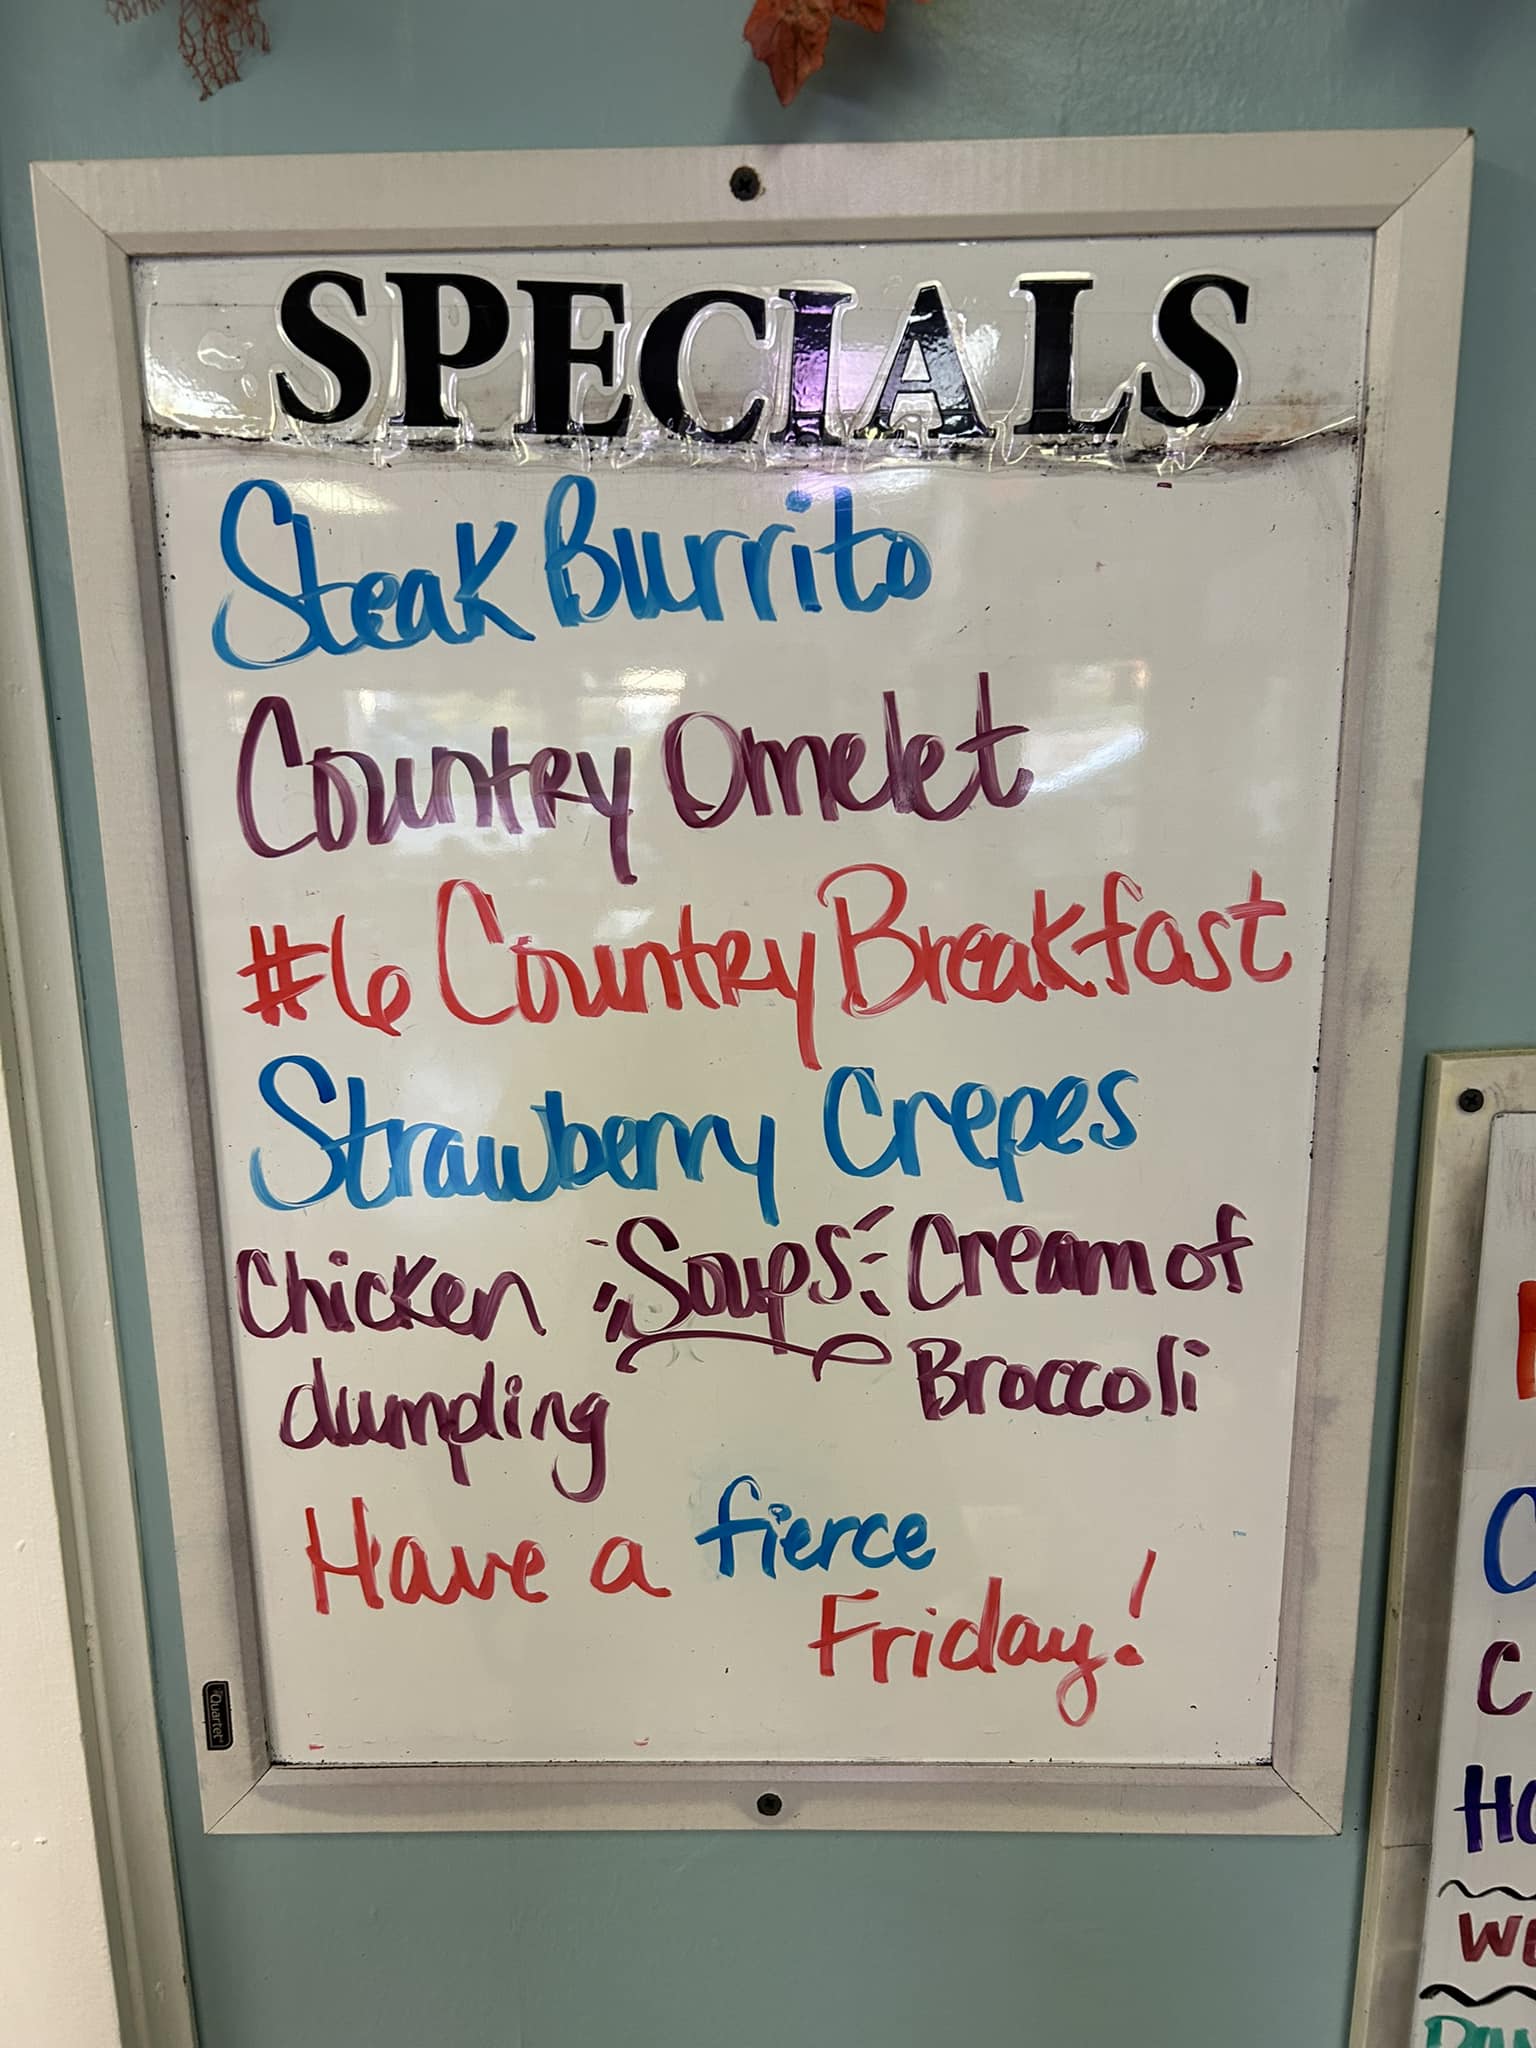 SPECIALS
Steak Burrito
Country Omelet
#6 Country Breakfast
Strawberry Crepes
Chicken Soups Cream of
dumpling Broccoli
Have a fierce
Friday!
Quartet